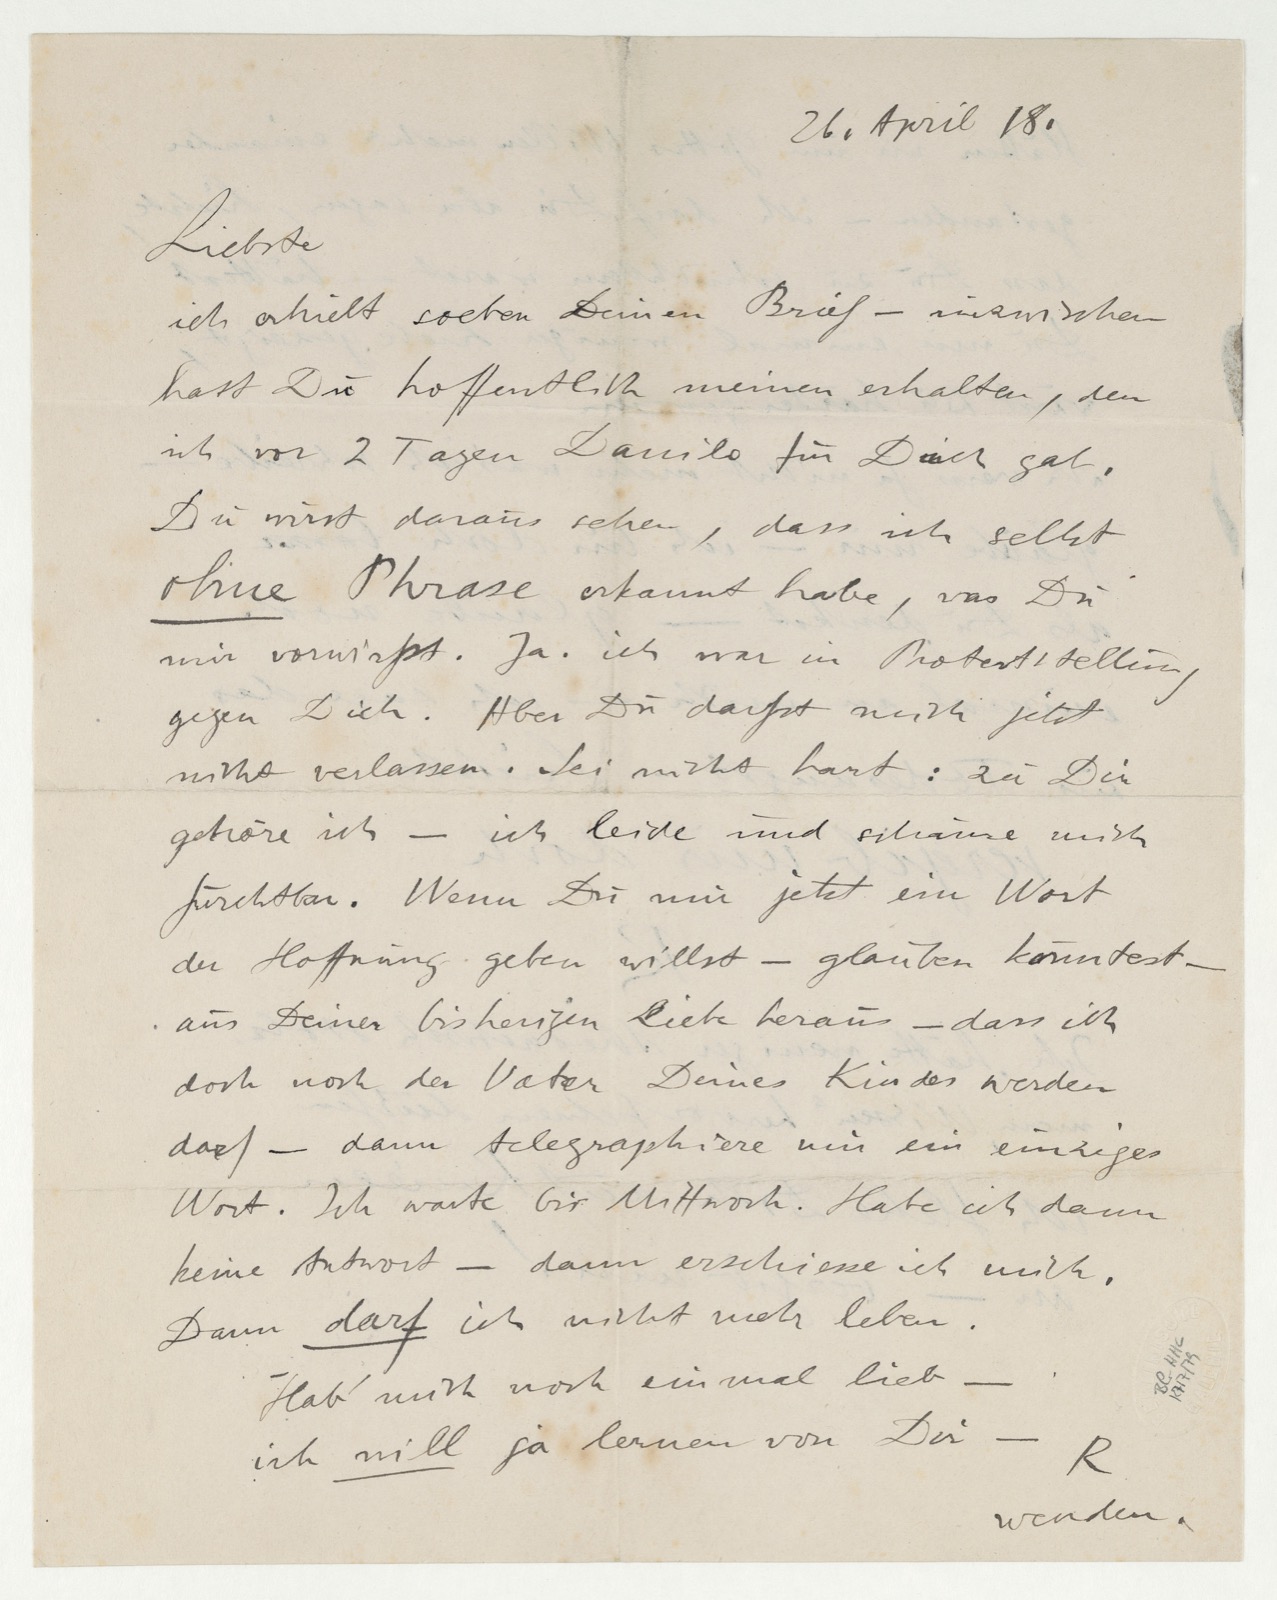 26. April 18.
Liebste
ich erhielt soeben Deinen Brief – inzwischen
hast Du hoffentlich meinen erhalten, den
ich vor 2 Tagen Danilo für Dich gab.
Du wirst daraus sehen, dass ich selbst
ohne Phrase erkannt habe, was Du
mir vorwirfst. Ja. ich war in Proteststellung
gegen Dich. Aber Du darfst mich jetzt
nicht verlassen. Sei nicht hart: zu Dir
gehöre ich – ich leide und schäme mich
furchtbar. Wenn Du mir jetzt ein Wort
der Hoffnung geben willst – glauben könntest –
aus Deiner bisherigen Liebe heraus – dass ich
doch noch der Vater Deines Kindes werden
darf – dann telegraphiere mir ein einziges
Wort. Ich warte bis Mittwoch. Habe ich dann
keine Antwort – dann erschiesse ich mich.
Dann darf ich nicht mehr leben.
Hab' mich noch einmal lieb –
ich will ja lernen von Dir –
R
wenden.